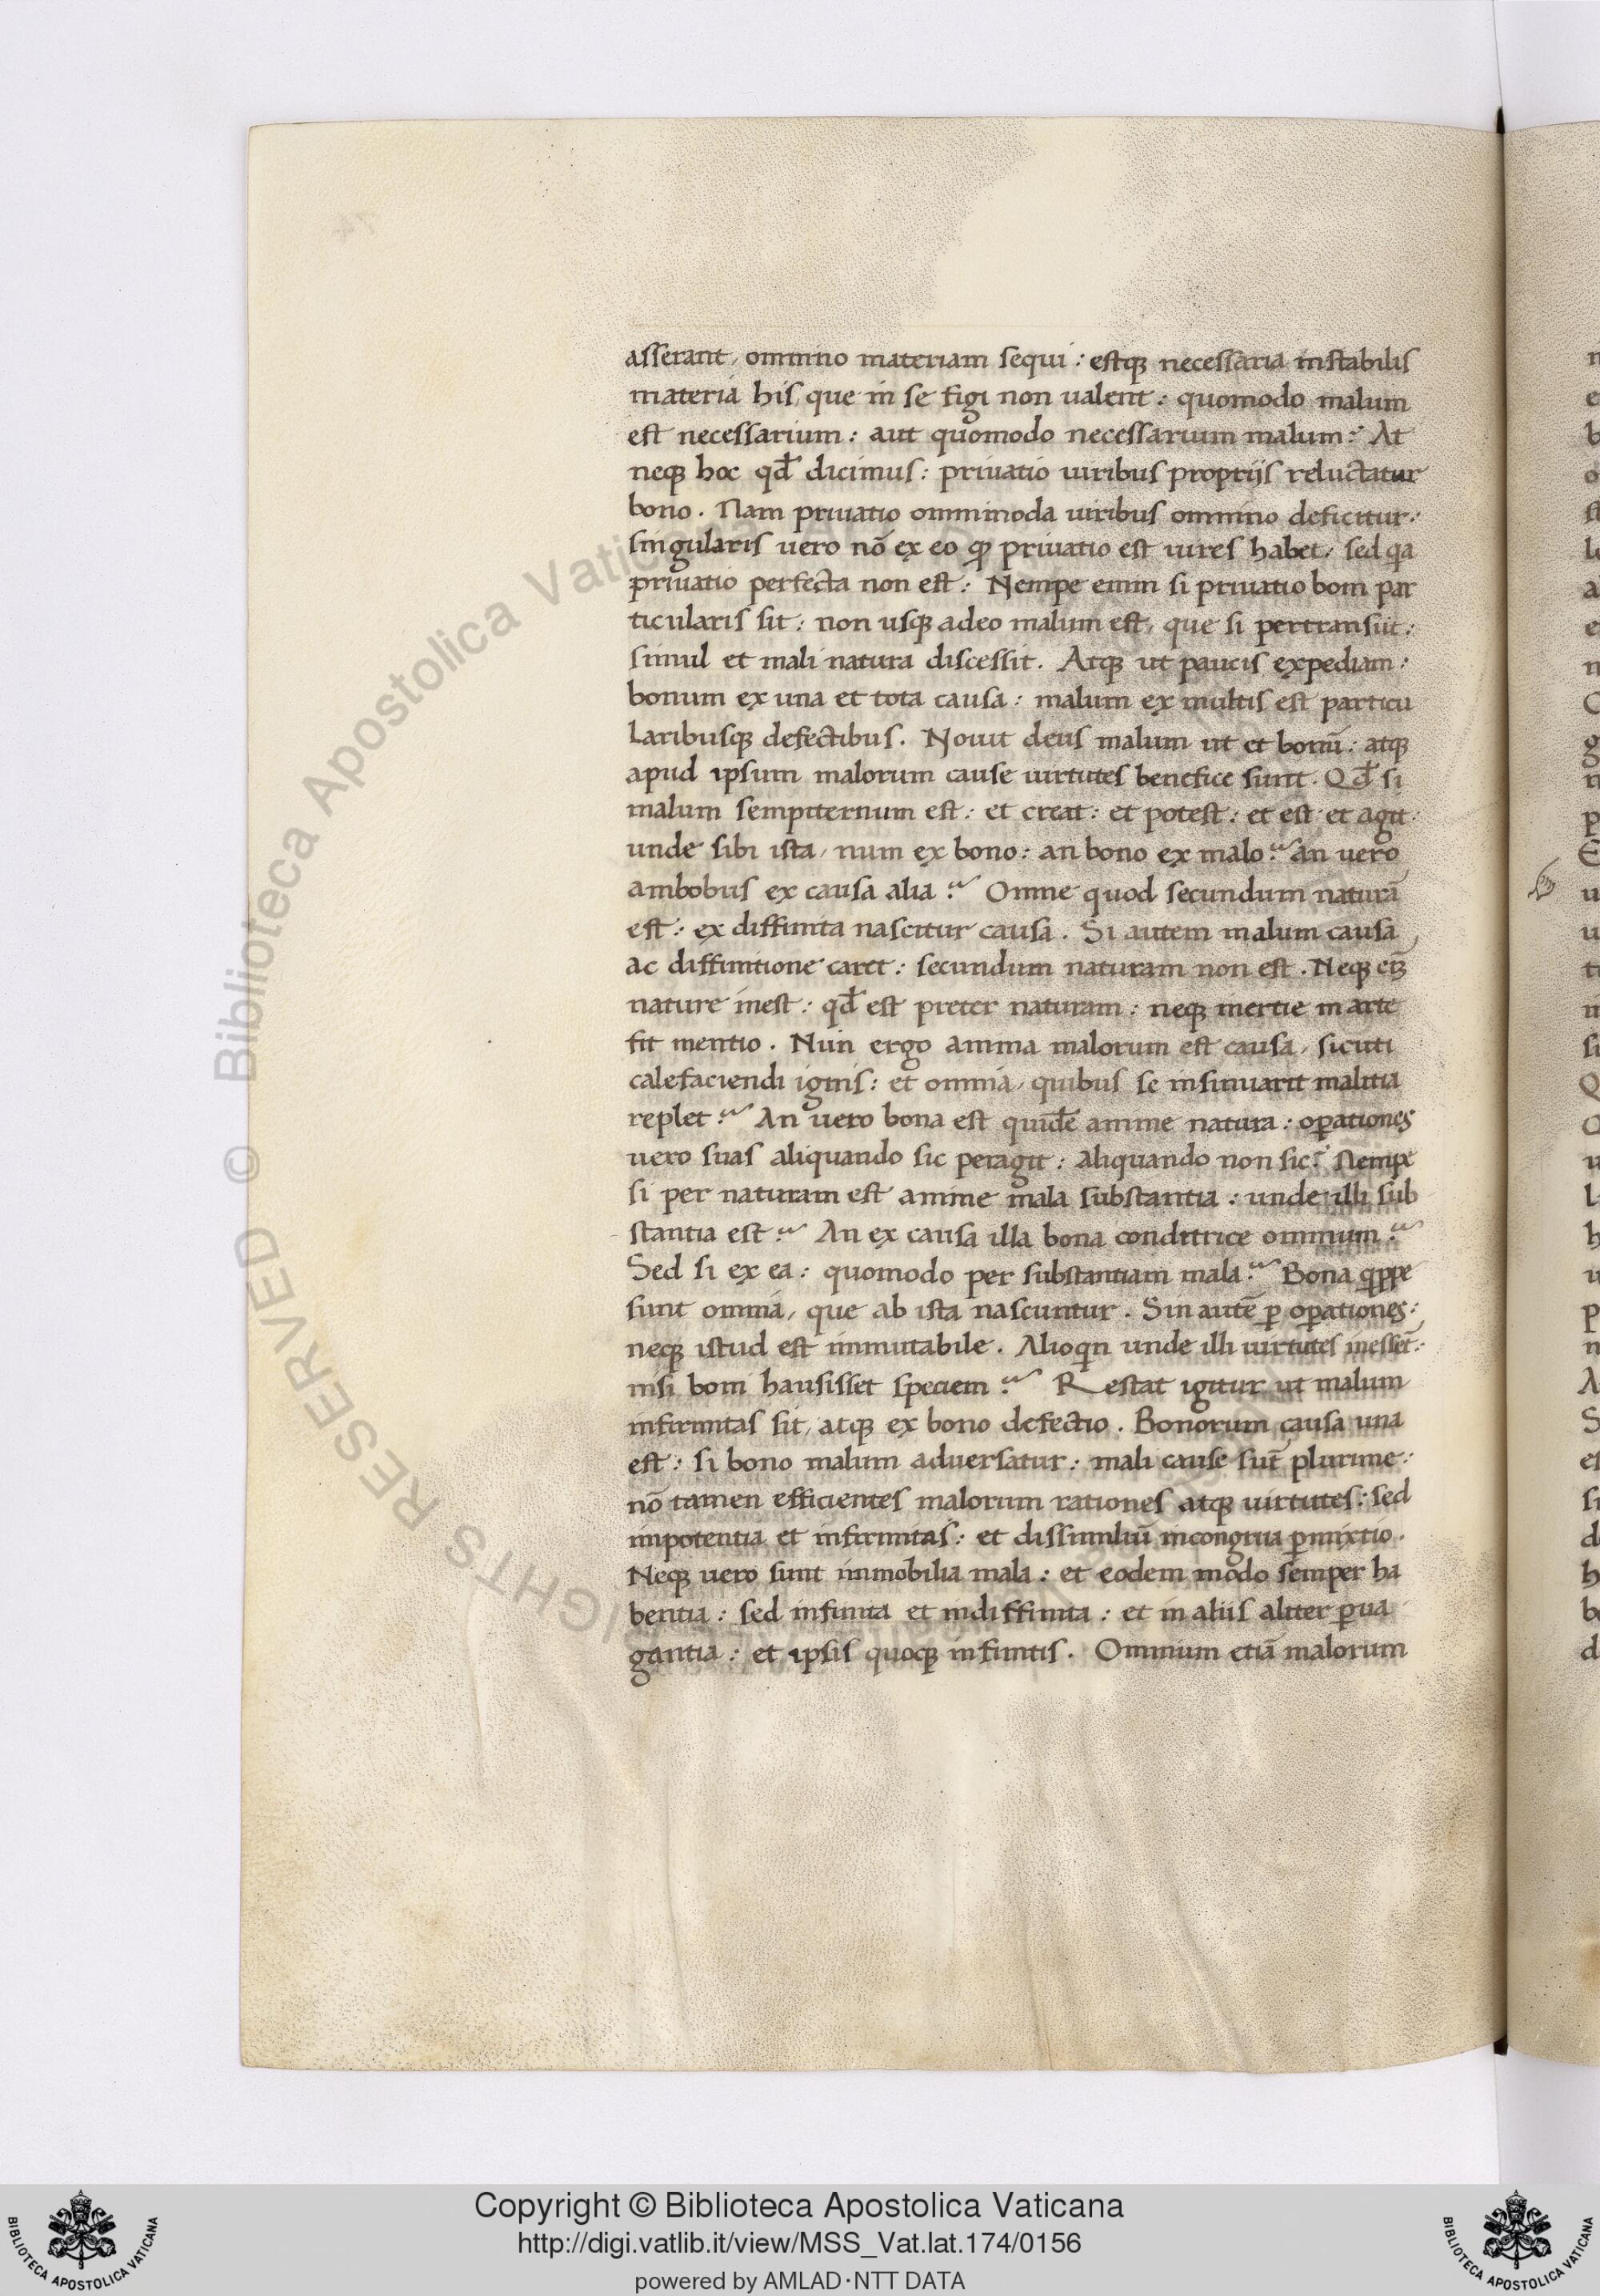 asserant, omnino materiam sequi: estq; necessaria instabilis
materia his, que in se figi non ualent: quomodo malum
est necessarium: aut quomodo necessarium malum? At
neq; hoc qđ dicimus: priuatio uiribus proprijs reluctatur
bono. Nam priuatio omnimoda uiribus omnino deficitur:
singularis uero nō ex eo ꝙ priuatio est uires habet, sed qa
priuatio perfecta non est: Nempe enim si priuatio boni par
ticularis sit: non usq; adeo malum est, que si pertransiit:
simul et mali natura discessit. Atq; ut paucis expediam:
bonum ex una et tota causa: malum ex multis est particu
laribusq; defectibus. Nouit deus malum ut et bonū: atq;
apud ipsum malorum cause uirtutes benefice sunt. Qđ si
malum sempiternum est: et creat: et potest: et est et agit:
unde sibi ista, num ex bono: an bono ex malo? an uero
ambobus ex causa alia? Omne quod secundum naturā
est: ex diffinita nascitur causa. Si autem malum causa
ac diffinitione caret: secundum naturam non est. Neq; eñ
nature inest: qđ est preter naturam: neq; inertie in arte
fit mentio. Nun ergo anima malorum est causa, sicuti
calefaciendi ignis: et omnia, quibus se insinuarit malitia
replet? An uero bona est quidē anime natura: oꝑationes
uero suas aliquando sic peragit: aliquando non sic? Nempe
si per naturam est anime mala substantia: unde illi sub
stantia est? An ex causa illa bona conditrice omnium?
Sed si ex ea: quomodo per substantiam mala? Bona qppe
sunt omnia, que ab ista nascuntur. Sin autē ꝑ oꝑationes:
neq; istud est immutabile. Alioqn unde illi uirtutes inessēt:
nisi boni hausisset speciem? Restat igitur ut malum
infirmitas sit, atq; ex bono defectio. Bonorum causa una
est: si bono malum aduersatur: mali cause sūt plurime:
nō tamen efficientes malorum rationes atq; uirtutes: sed
impotentia et infirmitas: et dissimiliū incongrua ꝑmixtio.
Neq; uero sunt immobilia mala: et eodem modo semper ha
bentia: sed infinita et indiffinita: et in aliis aliter ꝑua
gantia: et ipsis quoq; infinitis. Omnium etiā malorum
© Biblioteca Apostolica Vaticana
RIGHTS RESERVED
Copyright © Biblioteca Apostolica Vaticana
http://digi.vatlib.it/view/MSS_Vat.lat.174/0156
powered by AMLAD·NTT DATA
BIBLIOTECA APOSTOLICA VATICANA
BIBLIOTECA APOSTOLICA VATICANA